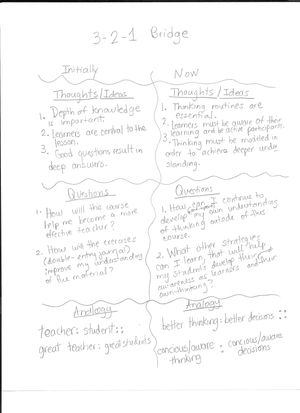 3-2-1 Bridge
Initially
Thoughts/Ideas
1. Depth of knowledge
is important.
2. Learners are central to the
lesson.
3. Good questions result in
deep answers.
Questions
1. How will the course
help me become a more
effective teacher?
2. How will the exercises
(double-entry journal)
improve my understanding
of the material?
Analogy
teacher: student ::
great teacher: great students
Now
Thoughts/Ideas
1. Thinking routines are
essential.
2. Learners must be aware of their
learning and be active participants.
3. Thinking must be modeled in
order to achieve deeper under
standing.
Questions
1. How can I continue to
develop my own understanding
of thinking outside of this
course.
2. What other strategies
can I learn, that will help
my students develop their
awareness as learners and their
own thinking?
Analogy
better thinking: better decisions ::
concious/aware : concious/aware
thinking decisions